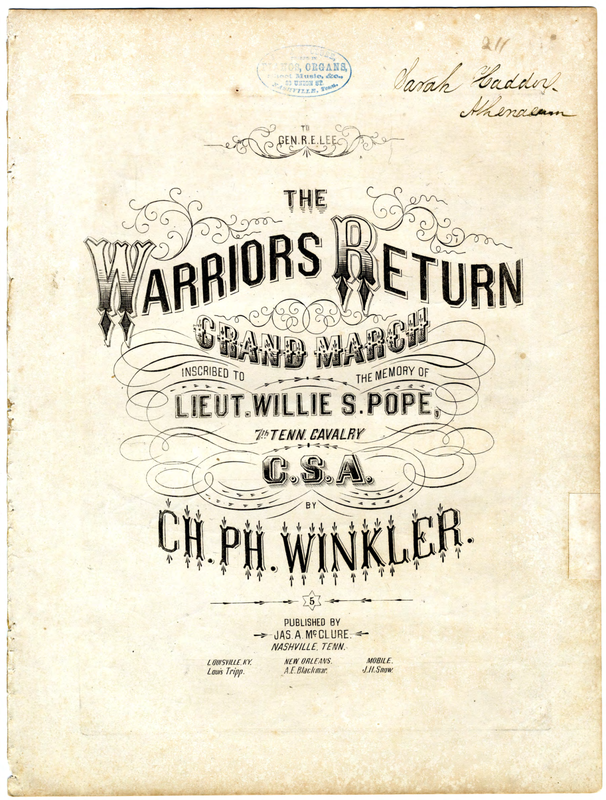 211
Sarah
Athenaeum
PIANOS, ORGANS,
Sheet Music, &c.,
UNION ST.
NASHVILLE, Tenn.
TO
GEN. R. E. LEE
THE
WARRIORS RETURN
GRAND MARCH
INSCRIBED TO THE MEMORY OF
LIEUT. WILLIE S. POPE,
7th TENN. CAVALRY
C.S.A.
BY
CH. PH. WINKLER.
5
PUBLISHED BY
JAS. A. McCLURE.
NASHVILLE, TENN.
LOUISVILLE, KY. NEW ORLEANS, MOBILE,
Louis Tripp. A.E. Blackmar. J.H. Snow.